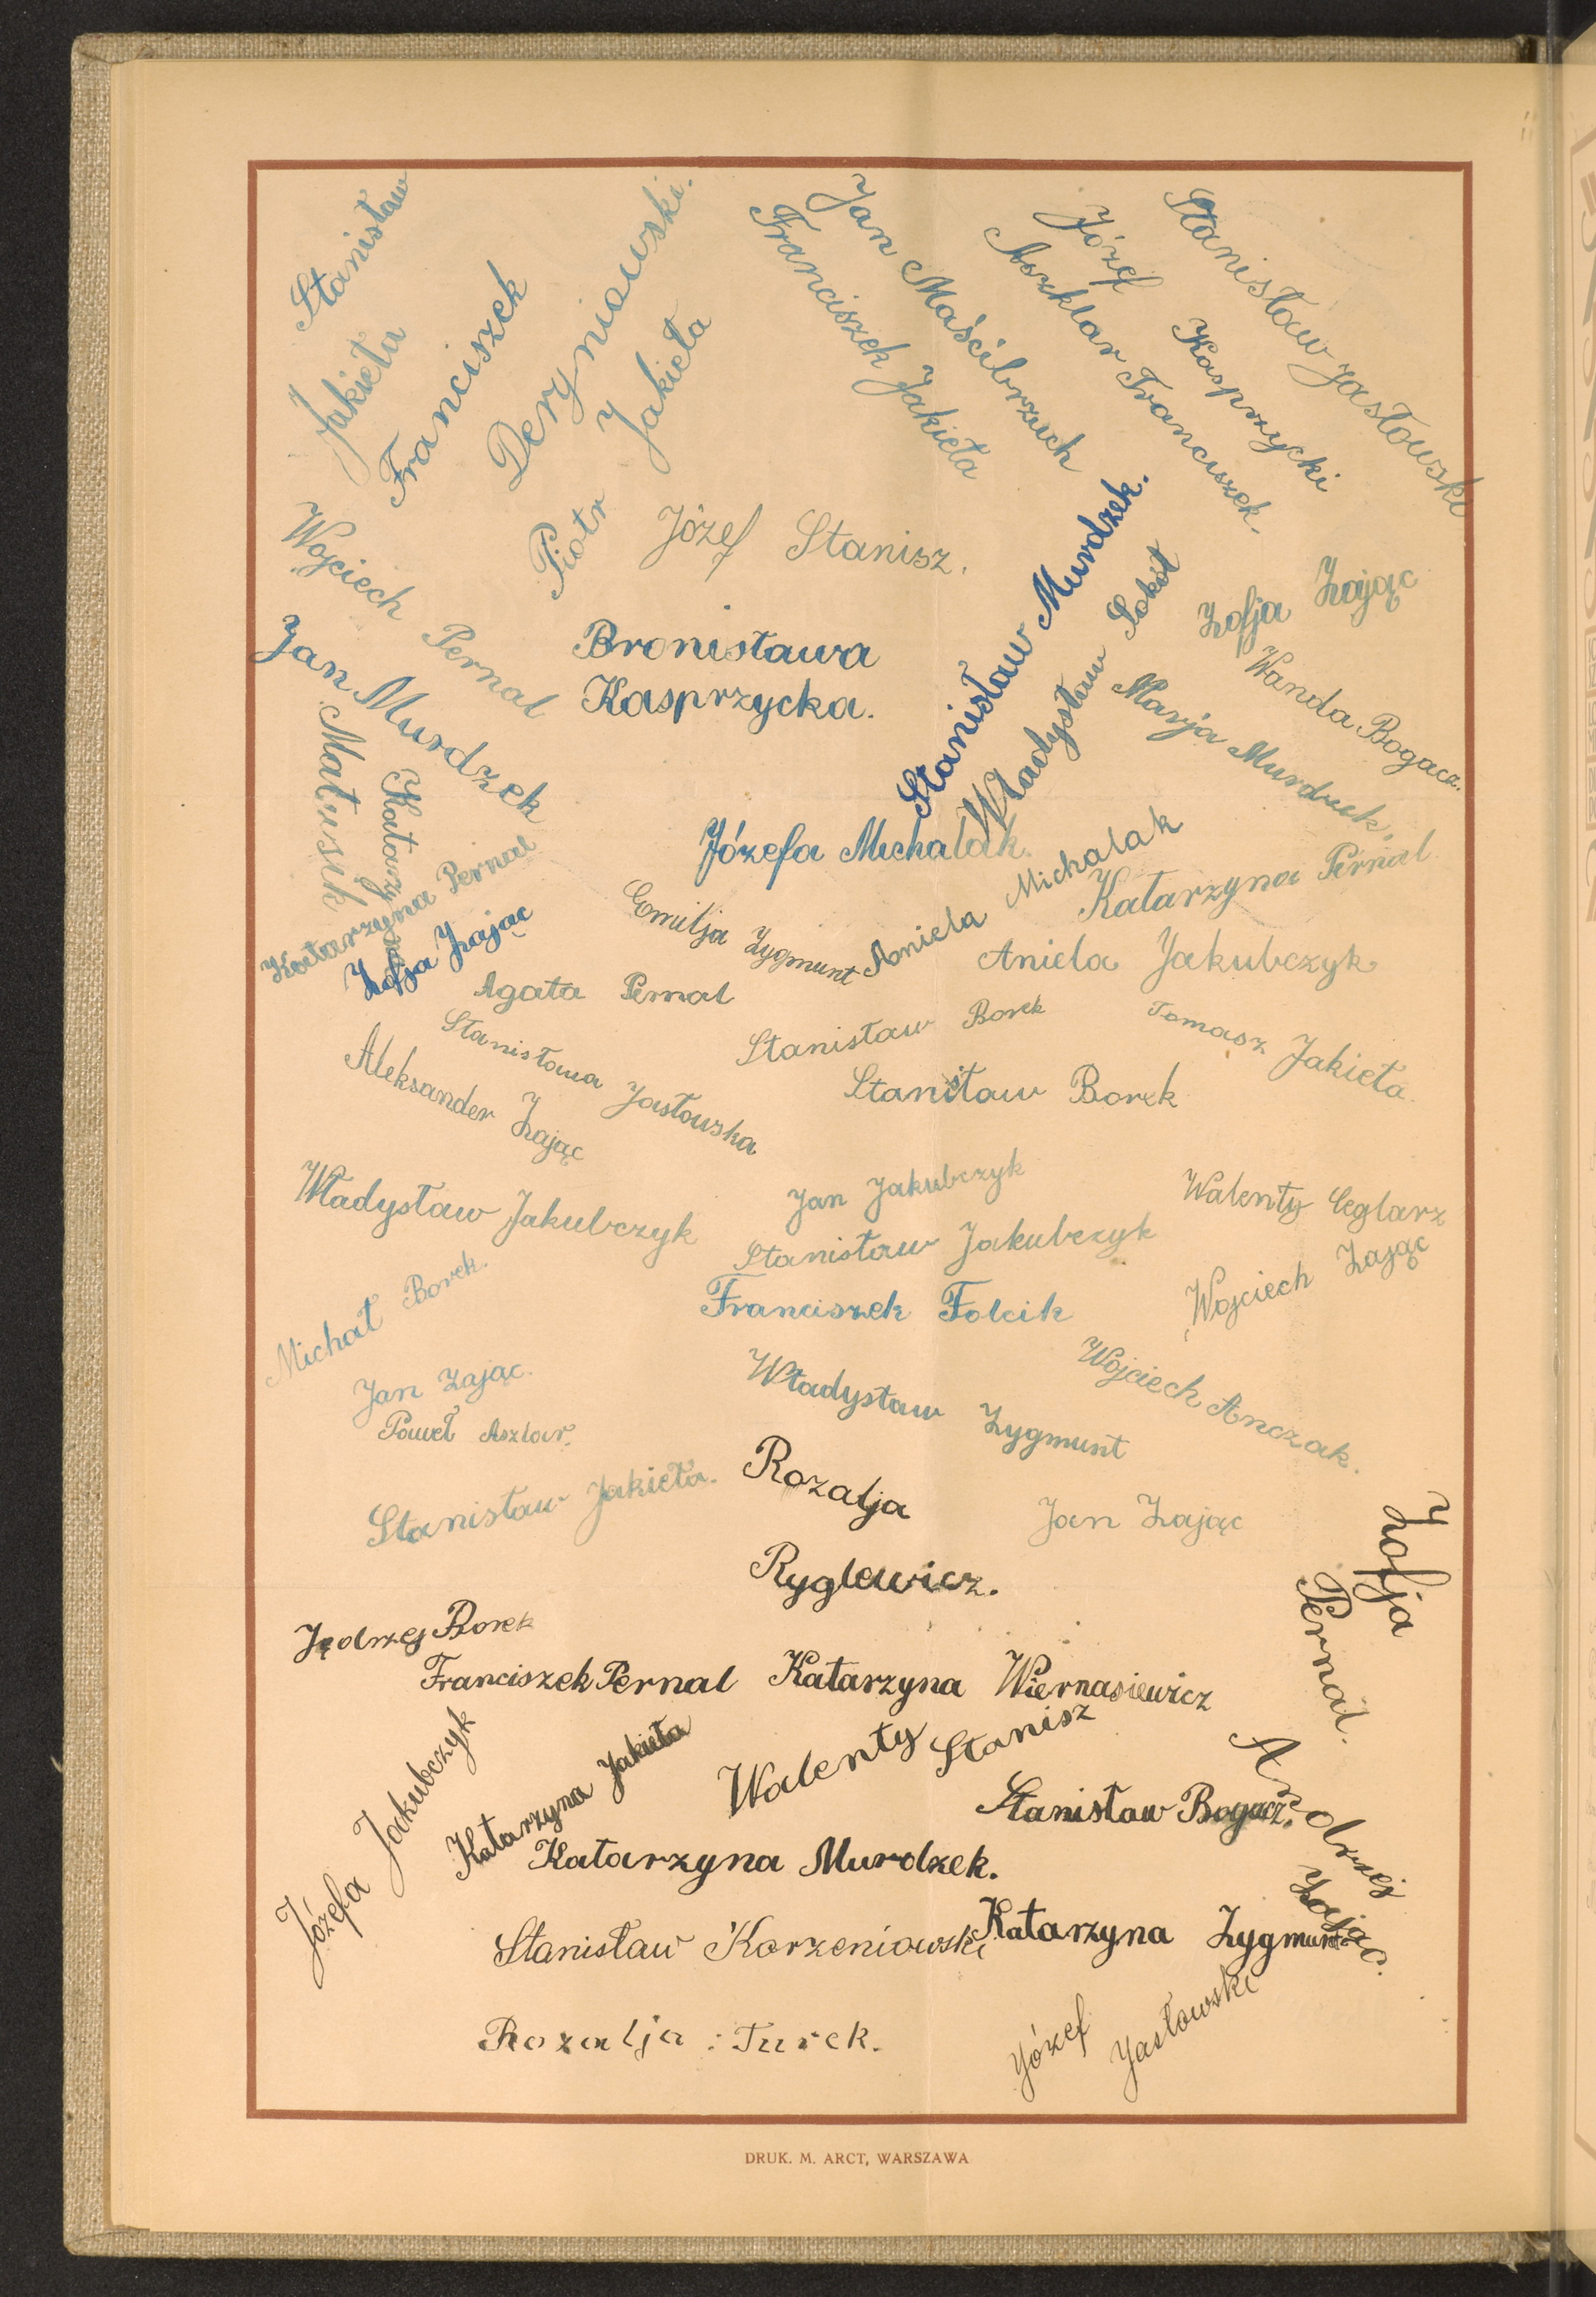 Stanisław Jakieła
Franciszek Deryniowski.
Piotr Jakieła
Jan Maścibrzuch
Franciszek Jakieła
Józef Kasprzycki
Aszklar Franciszek.
Stanisław Jasłowski
Józef Stanisz.
Wojciech Pernal
Jan Murdzek
Bronisława
Kasprzycka.
Stanisław Murdzek.
Władysław Sokół
Zofja Zając
Wanda Bogacz.
Marja Murdzek,
Katarzyna
Józefa Michalak.
Katarzyna Pernal
Zofja Zając
Emilja Zygmunt
Aniela Michalak
Katarzyna Pernal
Aniela Jakubczyk
Agata Pernal
Stanisława Jasłowska
Stanisław Borek
Tomasz Jakieła.
Aleksander Zając
Stanisław Borek
Władysław Jakubczyk
Jan Jakubczyk
Walenty Ceglarz
Stanisław Jakubczyk
Wojciech Zając
Michał Borek.
Franciszek Folcik
Jan Zając.
Władysław Zygmunt
Wojciech Anczak.
Paweł Aszlar.
Stanisław Jakieła.
Rozalja
Ryglewicz.
Jan Zając
Zofja Pernal.
Jędrzej Borek
Franciszek Pernal
Katarzyna Wiernasiewicz
Józefa Jakubczyk
Katarzyna Jakieła
Walenty Stanisz
Stanisław Bogacz.
Andrzej Zając.
Katarzyna Murdzek.
Stanisław Korzeniowski
Katarzyna Zygmunt
Rozalja Turek.
Józef Jasłowski
DRUK. M. ARCT, WARSZAWA